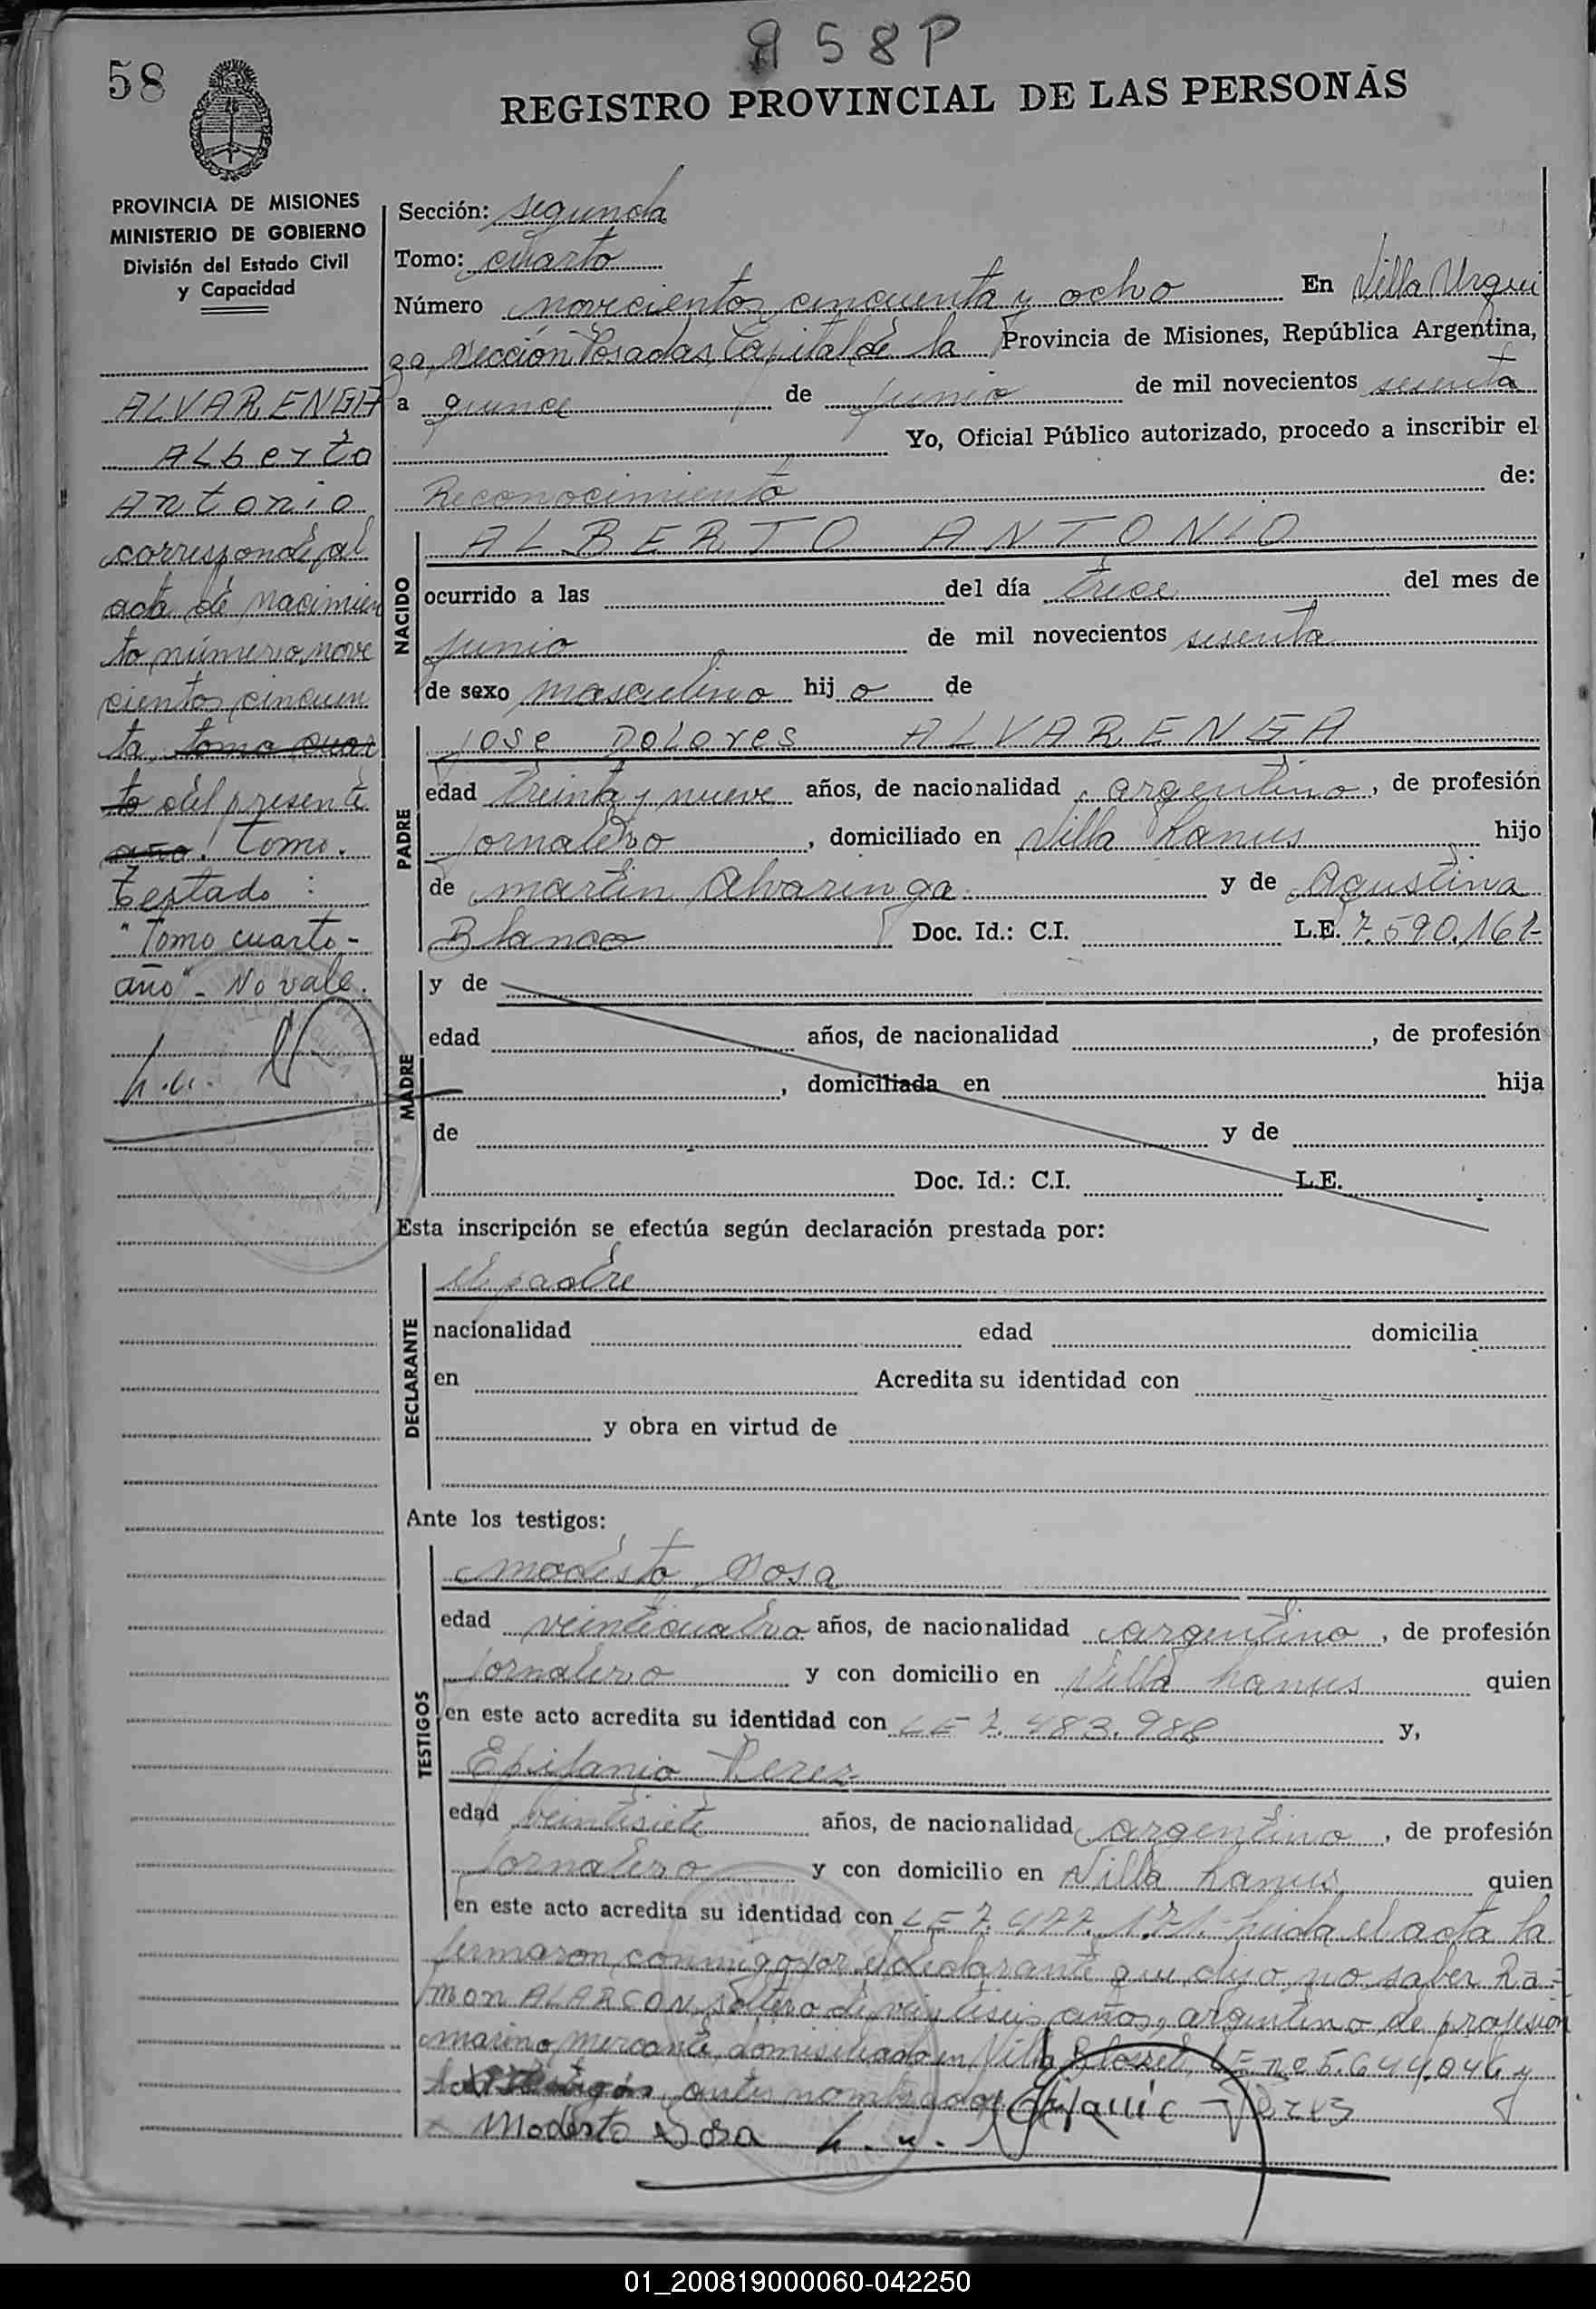 958P
58
REGISTRO PROVINCIAL DE LAS PERSONAS
PROVINCIA DE MISIONES
MINISTERIO DE GOBIERNO
División del Estado Civil
y Capacidad
ALVARENGA
Alberto
Antonio
corresponde al
acta de nacimien
to número nove
cientos cincuen
ta tomo cuar
to del presente
año. Tomo.
Testado:
"Tomo cuarto-
año" - No vale.
Sección: segunda
Tomo: cuarto
Número novecientos cincuenta y ocho En Villa Urqui
za, Sección Posadas, Capital de la Provincia de Misiones, República Argentina,
a quince de junio de mil novecientos sesenta
Yo, Oficial Público autorizado, procedo a inscribir el
Reconocimiento de:
NACIDO
ALBERTO ANTONIO
ocurrido a las del día trece del mes de
junio de mil novecientos sesenta
de sexo masculino hijo de
PADRE
José Dolores ALVARENGA
edad treinta y nueve años, de nacionalidad argentino, de profesión
jornalero, domiciliado en Villa Lanus hijo
de Martin Alvarenga y de Agustina
Blanco Doc. Id.: C.I. L.E. 7.590.161-
MADRE
y de
edad años, de nacionalidad , de profesión
, domiciliada en hija
de y de
Doc. Id.: C.I. L.E.
Esta inscripción se efectúa según declaración prestada por:
DECLARANTE
el padre
nacionalidad edad domicilia
en Acredita su identidad con
y obra en virtud de
Ante los testigos:
TESTIGOS
Modesto Sosa
edad veinticuatro años, de nacionalidad argentino, de profesión
jornalero y con domicilio en Villa Lanus quien
en este acto acredita su identidad con LE 7.483.988 y,
Epifanio Perez
edad veintisiete años, de nacionalidad argentino, de profesión
jornalero y con domicilio en Villa Lanus quien
en este acto acredita su identidad con LE 7.477.171.- Leida el acta la
firmaron conmigo por el declarante que dijo no saber Ra-
mon ALARCON, soltero de veintiseis años, argentino de profesion
marino mercante, domiciliado en Villa LE no 5.644.046 y
los testigos antes nombrados Epifanio Perez
Modesto Sosa
01_200819000060-042250